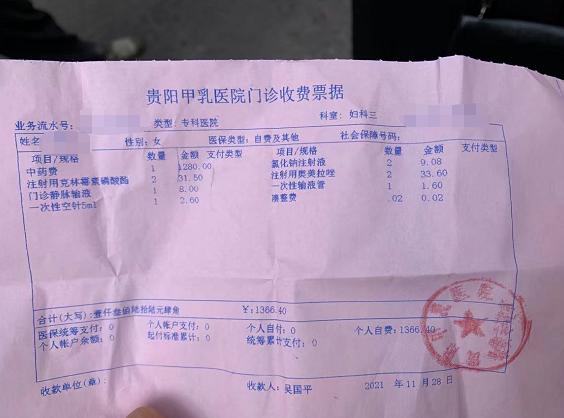 贵阳甲乳医院门诊收费票据
业务流水号: 类型: 专科医院 科室: 妇科三
姓名 性别: 女 医保类型: 自费及其他 社会保障号码:
项目/规格 数量 金额 支付类型 项目/规格 数量 金额 支付类型
中药费 1 1280.00 氯化钠注射液 2 9.08
注射用克林霉素磷酸酯 2 31.50 注射用奥美拉唑 2 33.60
门诊静脉输液 1 8.00 一次性输液管 1 1.60
一次性空针5ml 1 2.60 凑整费 .02 0.02
合计(大写): 壹仟叁佰陆拾陆元肆角 ¥:1366.40
医保统筹支付: 0 个人帐户支付: 0 个人自付: 0 个人自费: 1366.40
个人帐户余额: 0 起付标准累计: 0 统筹累计支付: 0
收款单位(章): 收款人: 吴国平 2021 年 11 月 28 日